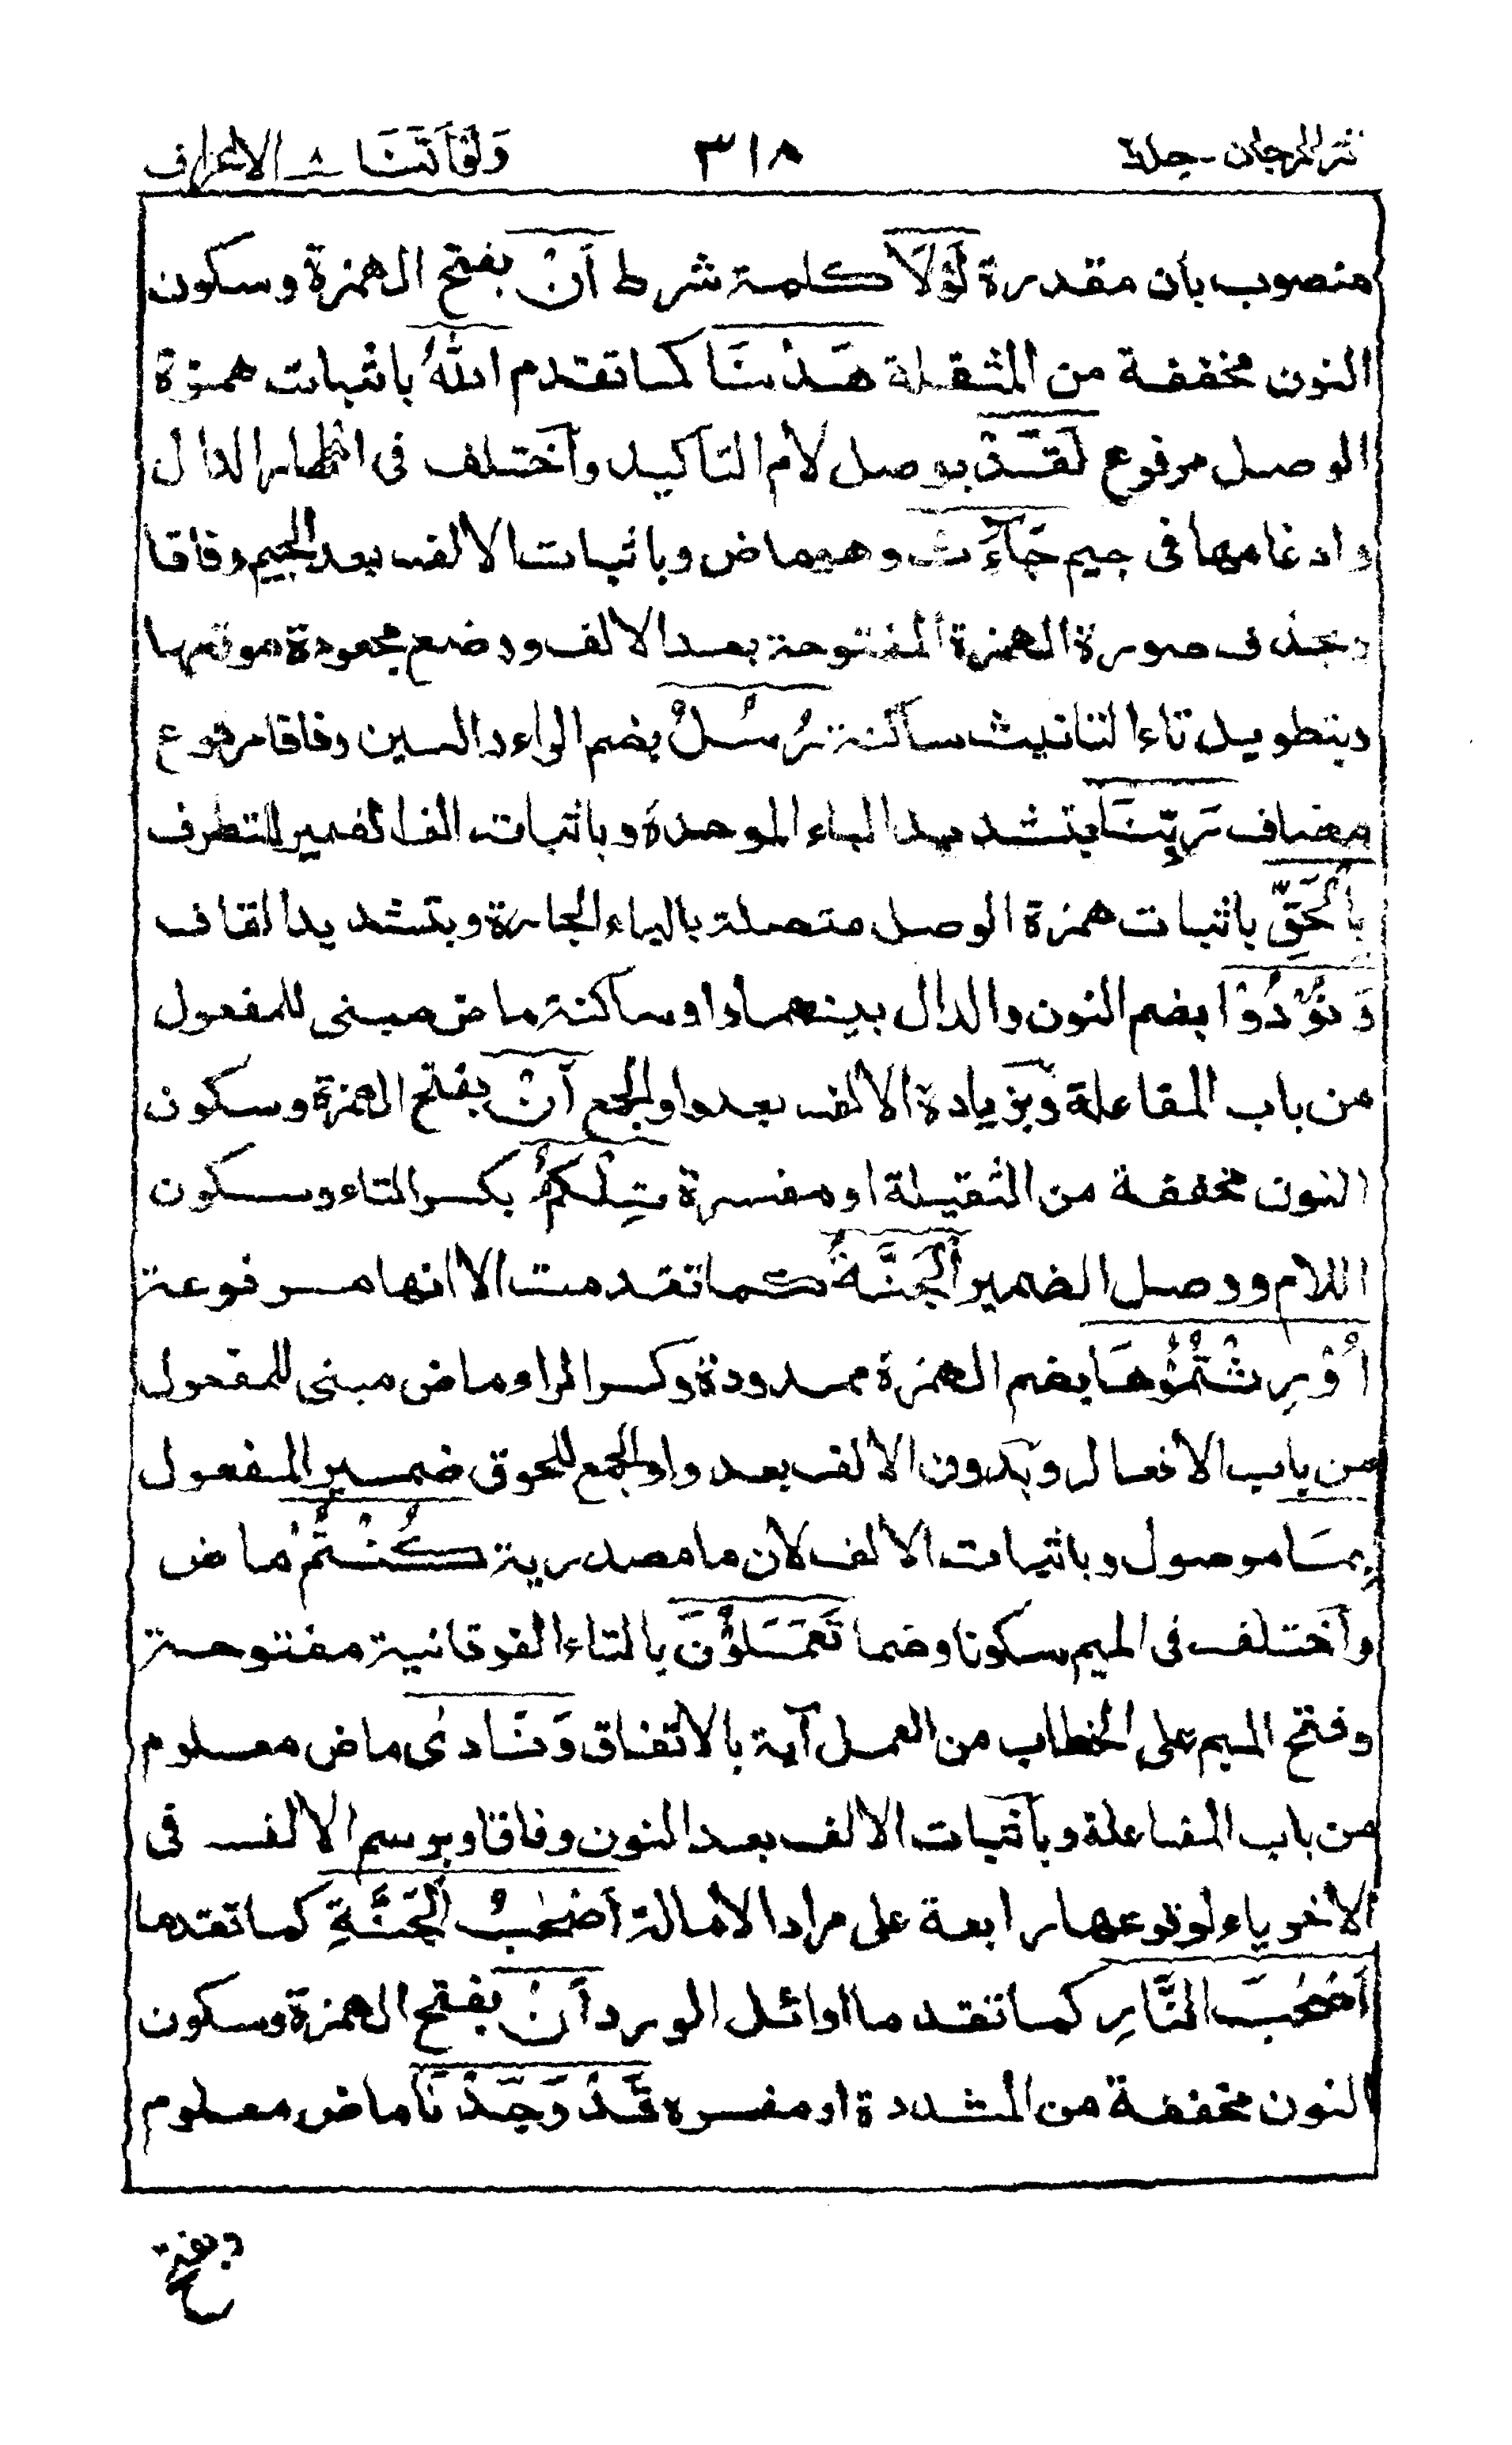 نثر المرجان - جلد٢
٣١٨
ولو اننا ٨ الاعراف
منصوب بان مقدرة لَوْلَآ كلمة شرط اَنْ بفتح الهمزة وسكون
النون مخففة من المثقلة هَدٰىنَا كما تقدم اللهُ باثبات همزة
الوصل مرفوع لَقَدْ بوصل لام التاكيد وآختلف فى اظهار الدال
وادغامها فى جيم جَآءَتْ وهو ماض وباثبات الالف بعد الجيم وفاقا
وبحذف صورة الهمزة المفتوحة بعد الالف ووضع مجعودة موقعها
وبتطويل تاء التانيث ساكنة رُسُلُ بضم الراء والسين وفاقا مرفوع
مضاف رَبِّنَا بتشديد الباء الموحدة وباثبات الف الضمير للتطرف
بِالْحَقِّ باثبات همزة الوصل متصلة بالباء الجارة وبتشديد القاف
وَنُوْدُوْا بضم النون والدال بينهما واو ساكنة ماض مبنى للمفعول
من باب المفاعلة وبزيادة الالف بعد واو الجمع اَنْ بفتح الهمزة وسكون
النون مخففة من الثقيلة او مفسرة تِلْكُمُ بكسر التاء وسكون
اللام ووصل الضمير الْجَنَّةُ كما تقدمت الا انها مرفوعة
اُوْرِثْتُمُوْهَا بضم الهمزة ممدودة وكسر الراء وماض مبنى للمفعول
من باب الافعال وبدون الالف بعد واو الجمع للحوق ضمير المفعول
بِمَا موصول وباثبات الالف لان ما مصدرية كُنْتُمْ ماض
وآختلف فى الميم سكونا وضما تَعْمَلُوْنَ بالتاء الفوقانية مفتوحة
وفتح الميم على الخطاب من العمل آية بالاتفاق وَنَادٰى ماض معلوم
من باب المفاعلة وباثبات الالف بعد النون وفاقا وبرسم الالف فى
الاخر ياء لوقوعها رابعة على مراد الامالة اَصْحٰبُ الْجَنَّةِ كما تقدما
اَصْحٰبَ النَّارِ كما تقدما اوائل الورد اَنْ بفتح الهمزة وسكون
النون مخففة من المشددة او مفسره قَدْ وَجَدْنَا ماض معلوم
وبفتح